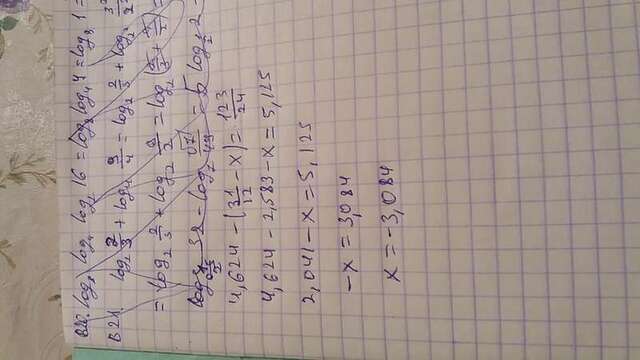 B20. log₈ log₄ log₂ 16 = log₈ log₄ 4 = log₈ 1 =
B21. log₂ 2/3 + log₄ 9/4 = log₂ 2/3 + log₂ 3/2
= log₂ 2/3 + log₂ = log₂
32 - log₇ √7/49 = 5 log 2 -
4,624 - (31/12 - x) = 123/24
4,624 - 2,583 - x = 5,125
2,041 - x = 5,125
-x = 3,084
x = -3,084